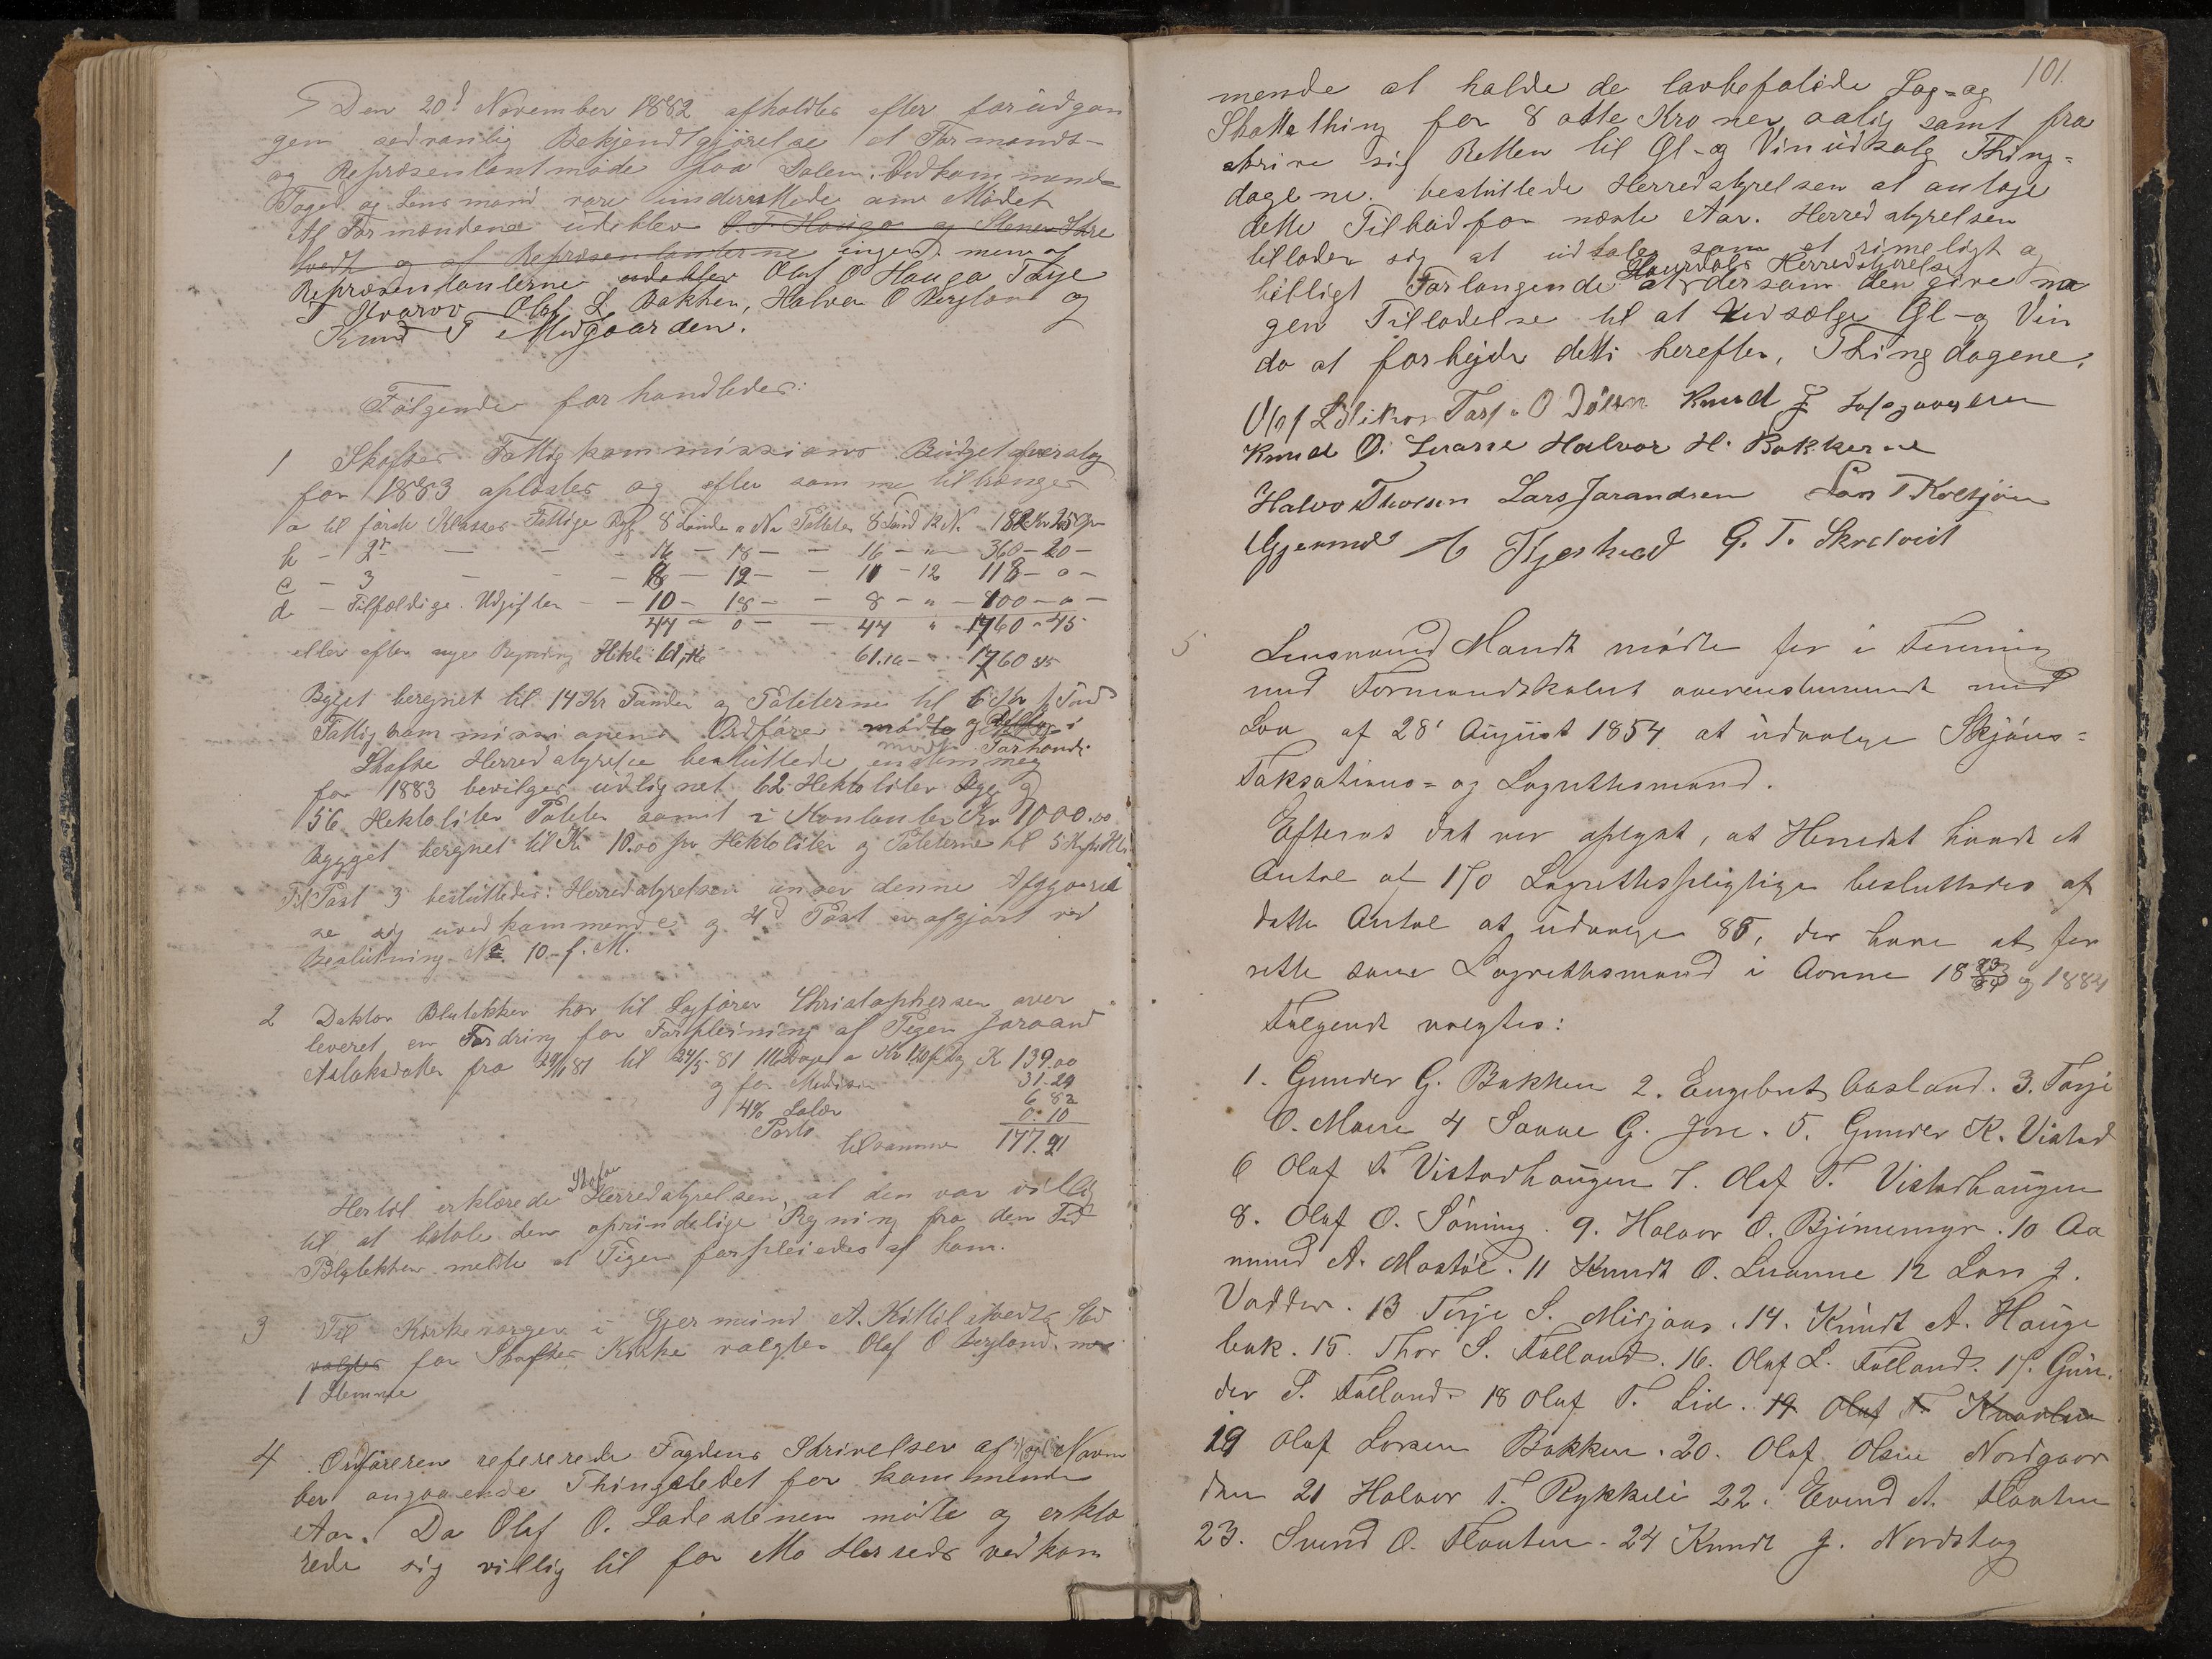 Den 20d November 1882 afholdtes efter forudgan
gen sedvanlig Bekjendtgjørelse et Formands-
og Repræsentantmøde paa Dalen. Vedkommende
Foged og Lensmand vare underrettede om Mødet
Af Formændene udeblev O. T. Hauga og Stener Skre
vedt og af Repræsentanterne ingen men af
Repræsentanterne udeblev Olaf O Hauga Tarje
T Olaf L Bakken, Halvor O Bergland og
Knud T Midgaarden.
Følgende forhandledes:
1 Skafse Fattigkommissions Budgetoverslag
for 1883 oplæstes og efter samme tiltrænges
a til første Klasses Fattige Byg 8 Tønder Poteter 8 Tønd 12 182 Kr 25 Øre
b - 2n - - - 16 - 18 - - 16 - " 360 - 20 -
c - 3 - - - 8 - 12 - - 11 - 12 118 - o -
d - Tilfældige Udgifter - - 10 - 18 - - 8 - " - 100 - o -
44 - 0 - - 44 " 1760 - 45
eller efter nye Regning Hektl 61,16 61.16 - 1760 45
Bygget beregnet til 14 Kr Tønden og Poteterne til 6 Kr Tønd
Fattigkommissionens Ordfører mødte og
mødte Forhandl.
Skafse Herredstyrelse besluttede enstemmig
for 1883 bevilges udlignet 62 Hektoliter Byg og
56 Hektoliter Poteter samt i Kontanter Kr 1000.00
Bygget beregnet til Kr 10.00 pr Hektoliter og Poteterne til 5 Kr pr Hl.
Til Post 3 besluttedes: Herredstyrelsen anser denne Afgjørel
se sig uvedkommende og 4d Post er afgjort ved
Beslutning No 10 f. M.
2 Doktor Blytekker har til Sagfører Christophersen over
leveret en Fordring for Forpleining af Pigen Joraand
Aslaksdatter fra 29/11 81 til 24/3 81 116 Dage a Kr 1.20 pr Dag Kr 139.00
og for Medisin 31.29
4% Salær 6 82
Porto 0.10
tilsammen 177.21
Hertil erklærede Skafse Herredstyrelsen, at den var villig
til at betale den oprindelige Regning fra den Tid
Blytekker meldte at Pigen forpleiedes af ham.
3 Til Kirkeværger i Gjermund A. Kittilskvedts Sted
valgtes for Skafse Kirke valgtes Olaf O Bergland. med
1 Stemme
4 Ordføreren refererede Fogdens Skrivelser af Novem
ber angaaende Thingstedet for kommende
Aar. Da Olaf O. Ladestenen mødte og erklæ
rede sig villig til for Mo Herreds vedkom
101.
mende at holde de lovbefalede Sag- og
Skattething for 8 otte Kroner aarlig samt fra
skrive sig Retten til Øl- og Vinudsalg Thing-
dagene. besluttede Herredstyrelsen at antage
dette Tilbud for næste Aar. Herredstyrelsen
tillader sig at udtale som et rimeligt og
billigt Forlangende at Laurdals Herredstyrelse dersom den give no
gen Tilladelse til at Udsælge Øl- og Vin
da at forbyde dette herefter, Thingdagene.
Olaf L Tarje O Dølen Knud
Knud O. Luarne Halvor H. Bakkene
Halvo Thorsen Lars Jarandsen Lars T Koltjøn
Gjermund G. T. Skrelveit
5 Lensmand Mandt mødte for i Forening
med Formandskabet overensstemmende med
Lov af 28' August 1854 at udvælge Skjøns-
Taksations- og Lagrettesmænd.
Efterat det var oplyst, at Herredet havde et
Antal af 170 Lagrettespligtige besluttedes af
dette Antal at udvælge 85, der have at for
rette som Lagrettesmænd i Aarene 1883 og 1884
Følgende valgtes:
1. Gunder G. Bakken 2. Engebret Aasland. 3. Tarje
O. Moen 4 Saave G. Jore. 5. Gunder K. Vistad
6 Olaf T Vistadhaugen 7. Olaf T. Vistadhaugen
8. Olaf O. Søning. 9. Halvor O. Bjønnemyr. 10 Aa
mund A. Mostøl. 11 Knudt O. Luanne 12 Lars J.
Vadder. 13 Terje S. Midjaas. 14. Knudt A. Hauge
bak. 15. Thor S. Følland. 16. Olaf L. Følland. 17. Gun.
der S. Følland. 18 Olaf T. Lid. 19. Olaf T.
19 Olaf Larsen Bakken. 20. Olaf Olsen Nordgaar
den 21 Halvor T. Rykkeli 22. Evend A. Flauten
23. Svend O. Flauten. 24 Knudt J. Nordskog